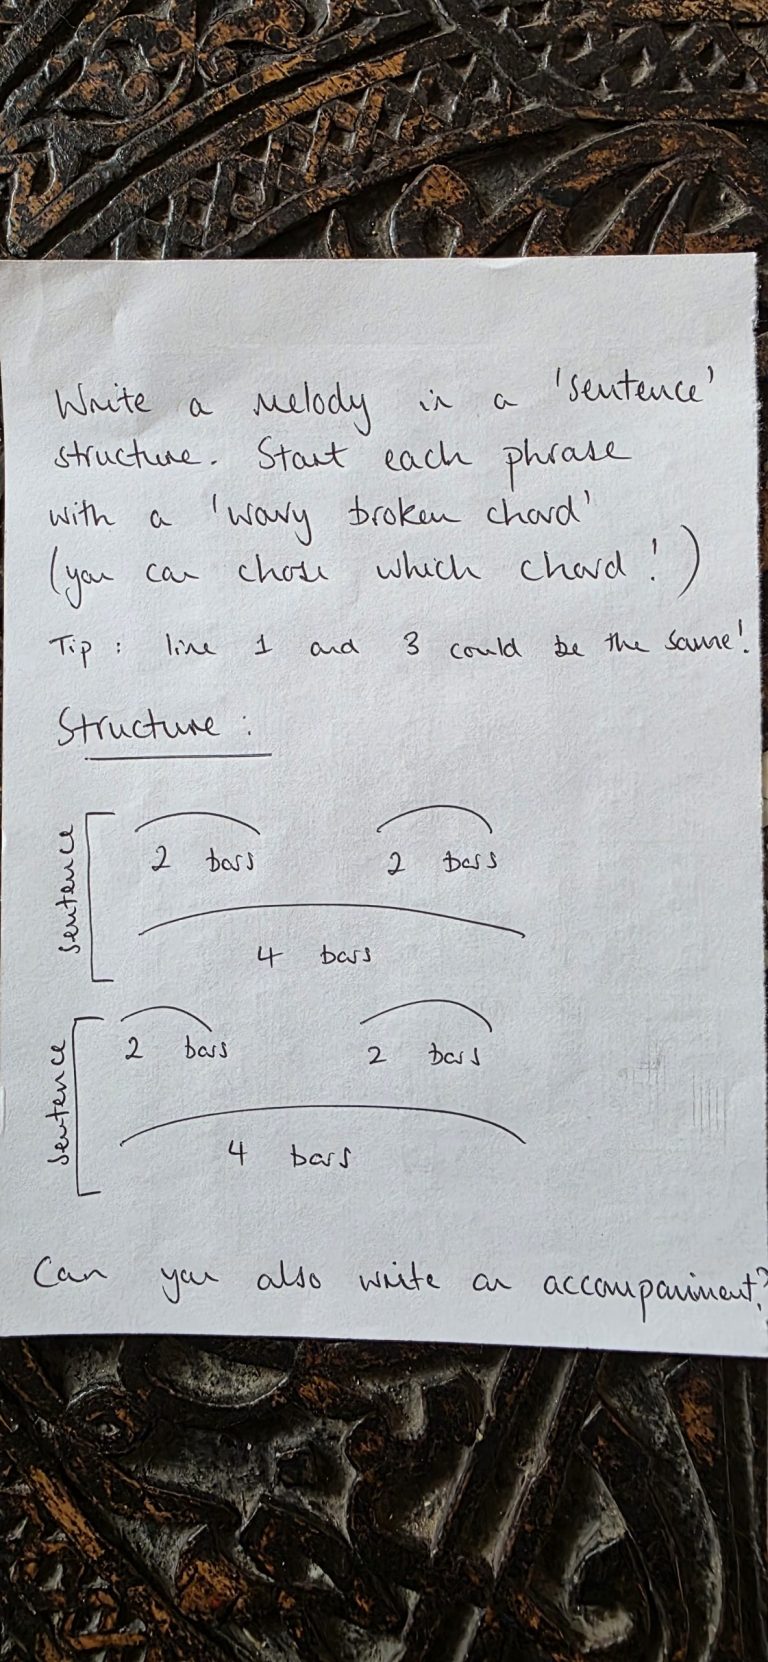 Write a melody in a 'sentence'
structure. Start each phrase
with a 'wavy broken chord'
(you can chose which chord!)
Tip: line 1 and 3 could be the same!
Structure:
sentence
2 bars 2 bars
4 bars
sentence
2 bars 2 bars
4 bars
Can you also write an accompaniment?